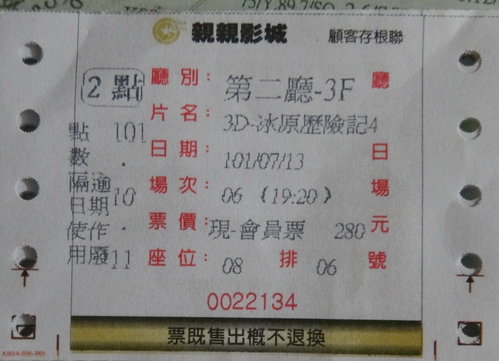 親親影城 顧客存根聯
2點 廳別: 第二廳-3F 廳
片名: 3D-冰原歷險記4
日期: 101/07/13 日
場次: 06 (19:20) 場
票價: 現-會員票 280 元
座位: 08 排 06 號
點數隔日使用
101.10.11
逾期作廢
0022134
票既售出概不退換